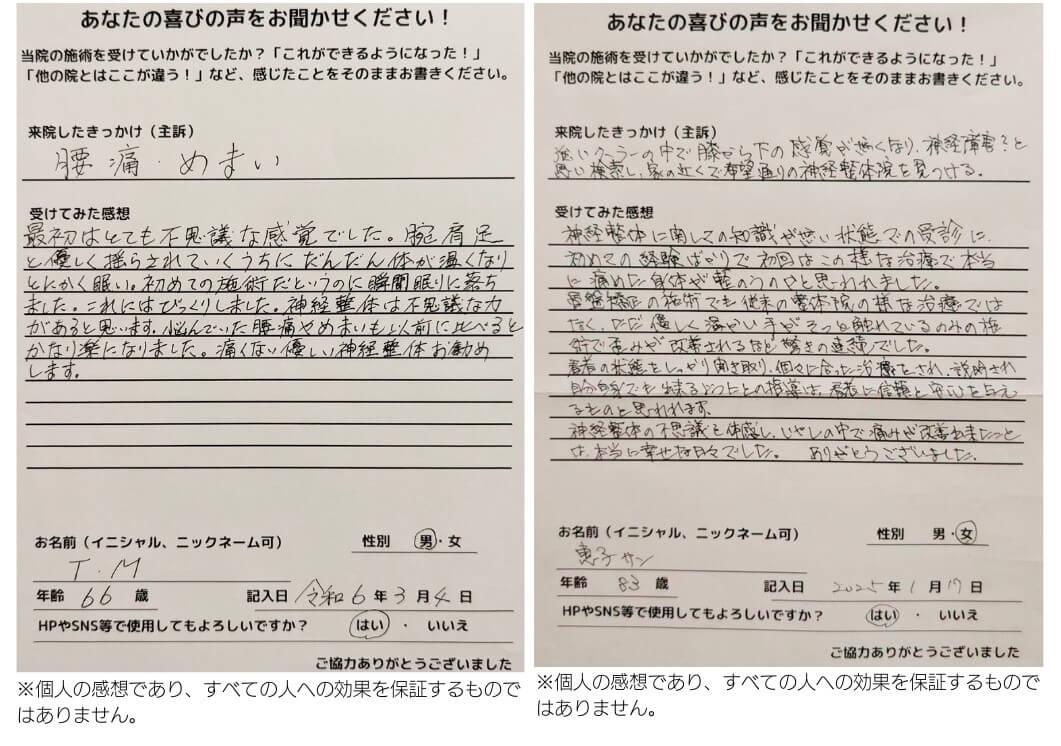 あなたの喜びの声をお聞かせください！
当院の施術を受けていかがでしたか？「これができるようになった！」
「他の院とはここが違う！」など、感じたことをそのままお書きください。
来院したきっかけ（主訴）
腰痛・めまい
受けてみた感想
最初はとても不思議な感覚でした。腕肩足
と優しく揺らされていくうちに、だんだん体が温くなり
とにかく眠い。初めての施術だというのに瞬間眠りに落ち
ました。これにはびっくりしました。神経整体は不思議な力
があると思います。悩んでいた腰痛やめまいも以前に比べると
かなり楽になりました。痛くない優しい神経整体お勧め
します。
お名前（イニシャル、ニックネーム可）
性別 男・女
T.M
年齢 66 歳
記入日 令和6年3月4日
HPやSNS等で使用してもよろしいですか？ はい ・ いいえ
ご協力ありがとうございました
※個人の感想であり、すべての人への効果を保証するもので
はありません。
あなたの喜びの声をお聞かせください！
当院の施術を受けていかがでしたか？「これができるようになった！」
「他の院とはここが違う！」など、感じたことをそのままお書きください。
来院したきっかけ（主訴）
クーラーの中で膝から下の感覚が無くなり、神経障害？と
思い検索し、家の近くで希望通りの神経整体院を見つける。
受けてみた感想
神経整体に関しての知識が無い状態での受診に、
初めての経験ばかりで初回はこの様な治療で本当
に痛めた身体が軽のうのやと思われました。
骨盤矯正の施術でも従来の整体院の様な治療では
なく、ただ優しく温かい手がそっと触れているのみの施
術で歪みが改善されるなど驚きの連続でした。
患者の状態をしっかり聞き取り、個々に合った治療をされ、説明され
自分自身でも出来るようにとの指導は、患者に信頼と安心を与え
るものと思われます。
神経整体の不思議を体感し、いやしの中で痛みが改善出来たこと
は、本当に幸せな日々でした。 ありがとうございました。
お名前（イニシャル、ニックネーム可）
性別 男・女
恵子サン
年齢 83 歳
記入日 2025年1月17日
HPやSNS等で使用してもよろしいですか？ はい ・ いいえ
ご協力ありがとうございました
※個人の感想であり、すべての人への効果を保証するもので
はありません。